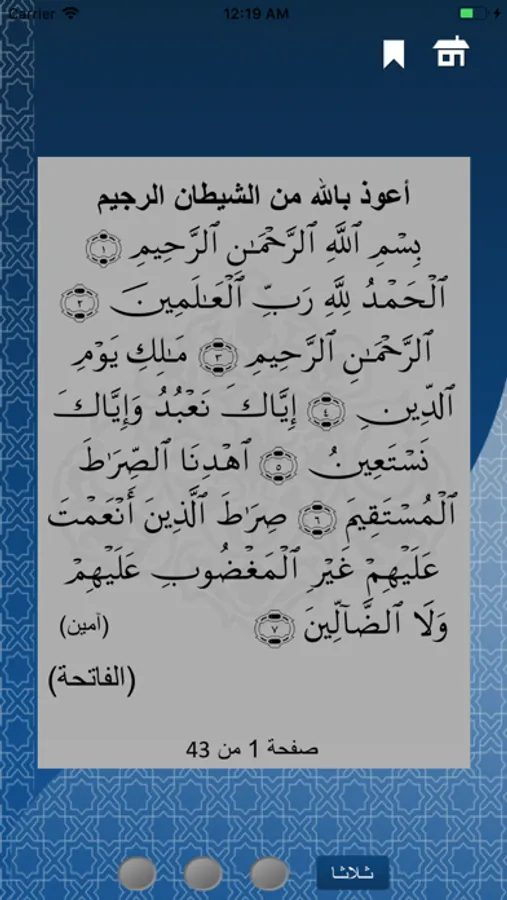 Carrier 12:19 AM
أعوذ بالله من الشيطان الرجيم
بِسْمِ ٱللَّهِ ٱلرَّحْمَـٰنِ ٱلرَّحِيمِ ١
ٱلْحَمْدُ لِلَّهِ رَبِّ ٱلْعَـٰلَمِينَ ٢
ٱلرَّحْمَـٰنِ ٱلرَّحِيمِ ٣ مَـٰلِكِ يَوْمِ
ٱلدِّينِ ٤ إِيَّاكَ نَعْبُدُ وَإِيَّاكَ
نَسْتَعِينُ ٥ ٱهْدِنَا ٱلصِّرَٰطَ
ٱلْمُسْتَقِيمَ ٦ صِرَٰطَ ٱلَّذِينَ أَنْعَمْتَ
عَلَيْهِمْ غَيْرِ ٱلْمَغْضُوبِ عَلَيْهِمْ
وَلَا ٱلضَّآلِّينَ ٧ (آمين)
(الفاتحة)
صفحة 1 من 43
ثـلاثـا